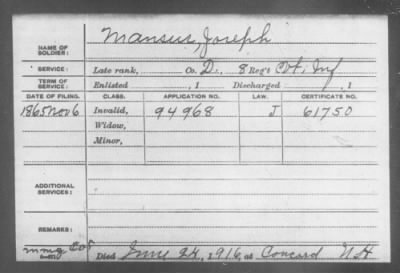 NAME OF SOLDIER: Mansur, Joseph
SERVICE: Late rank, Co. D., 8 Reg't Vt. Inf
TERM OF SERVICE: Enlisted , 1 Discharged , 1
DATE OF FILING. CLASS. APPLICATION NO. LAW. CERTIFICATE NO.
1865 Nov 6 Invalid, 94968 J 61750
Widow,
Minor,
ADDITIONAL SERVICES:
REMARKS:
Died June 24, 1916, at Concord N H